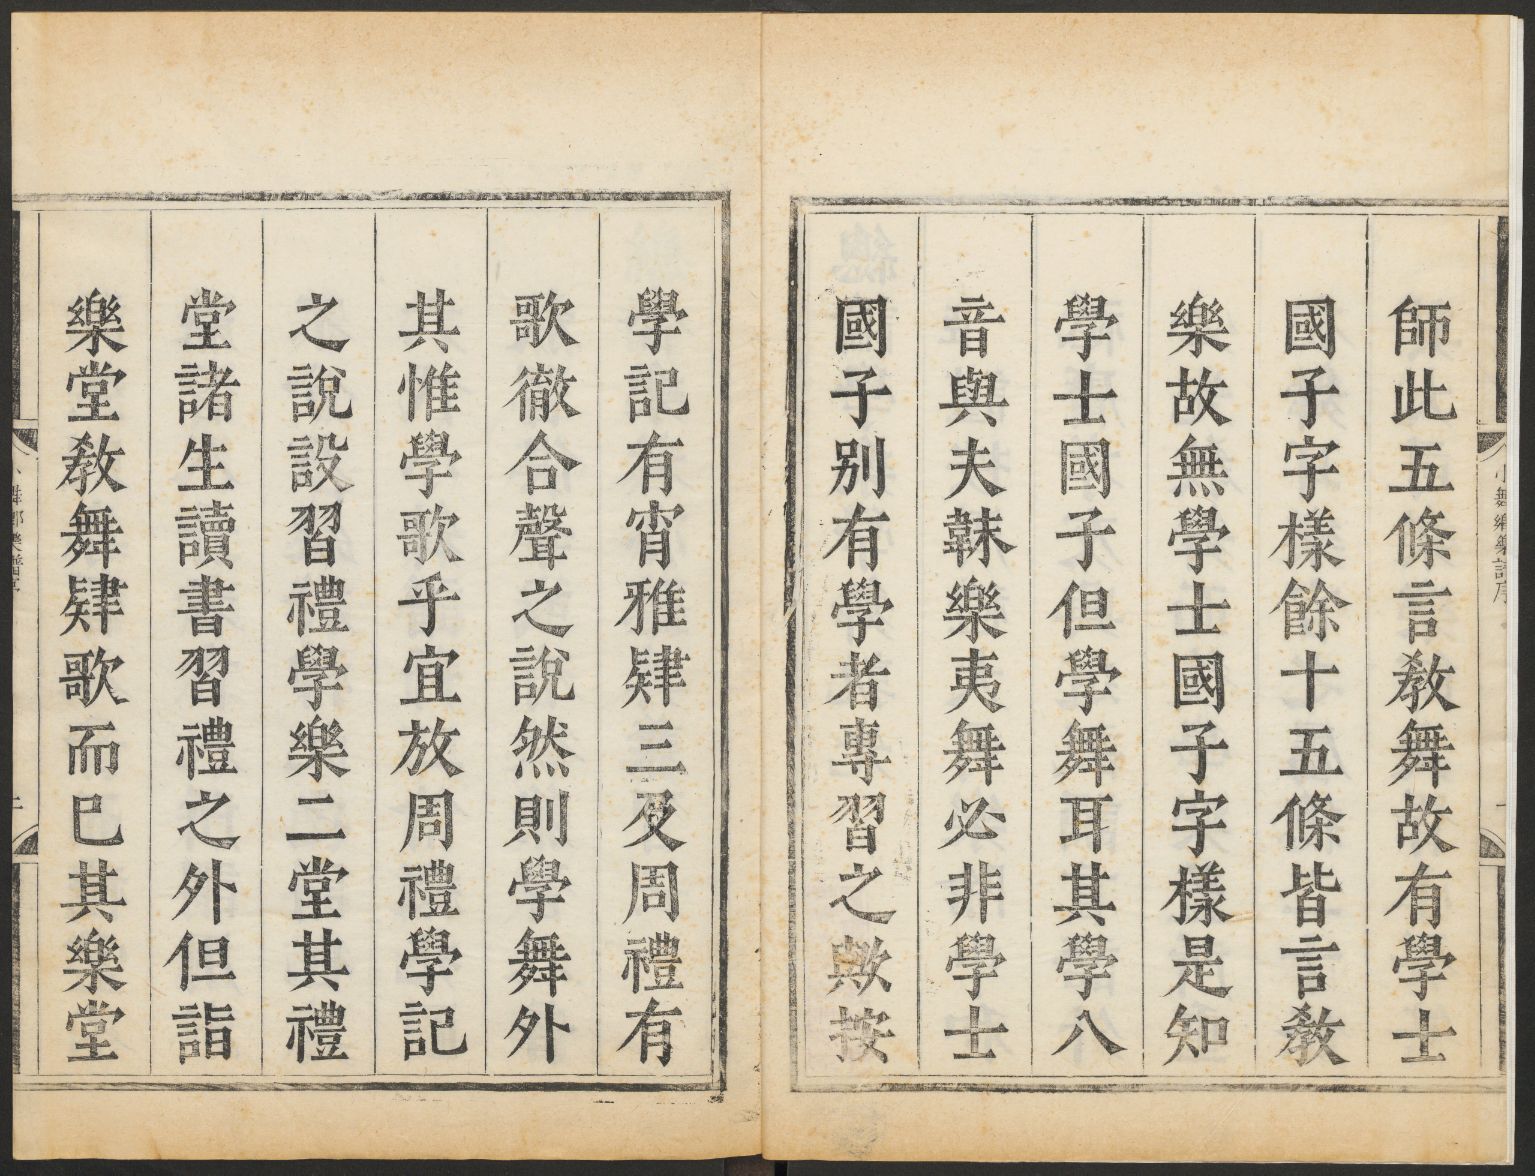 師此五條言敎舞故有學士
國子字樣餘十五條皆言敎
樂故無學士國子字樣是知
學士國子但學舞耳其學八
音與夫韎樂夷舞必非學士
國子別有學者專習之歟按
學記有宵雅肄三及周禮有
歌徹合聲之說然則學舞外
其惟學歌乎宜放周禮學記
之說設習禮學樂二堂其禮
堂諸生讀書習禮之外但詣
樂堂敎舞肄歌而已其樂堂
小舞鄉樂譜序